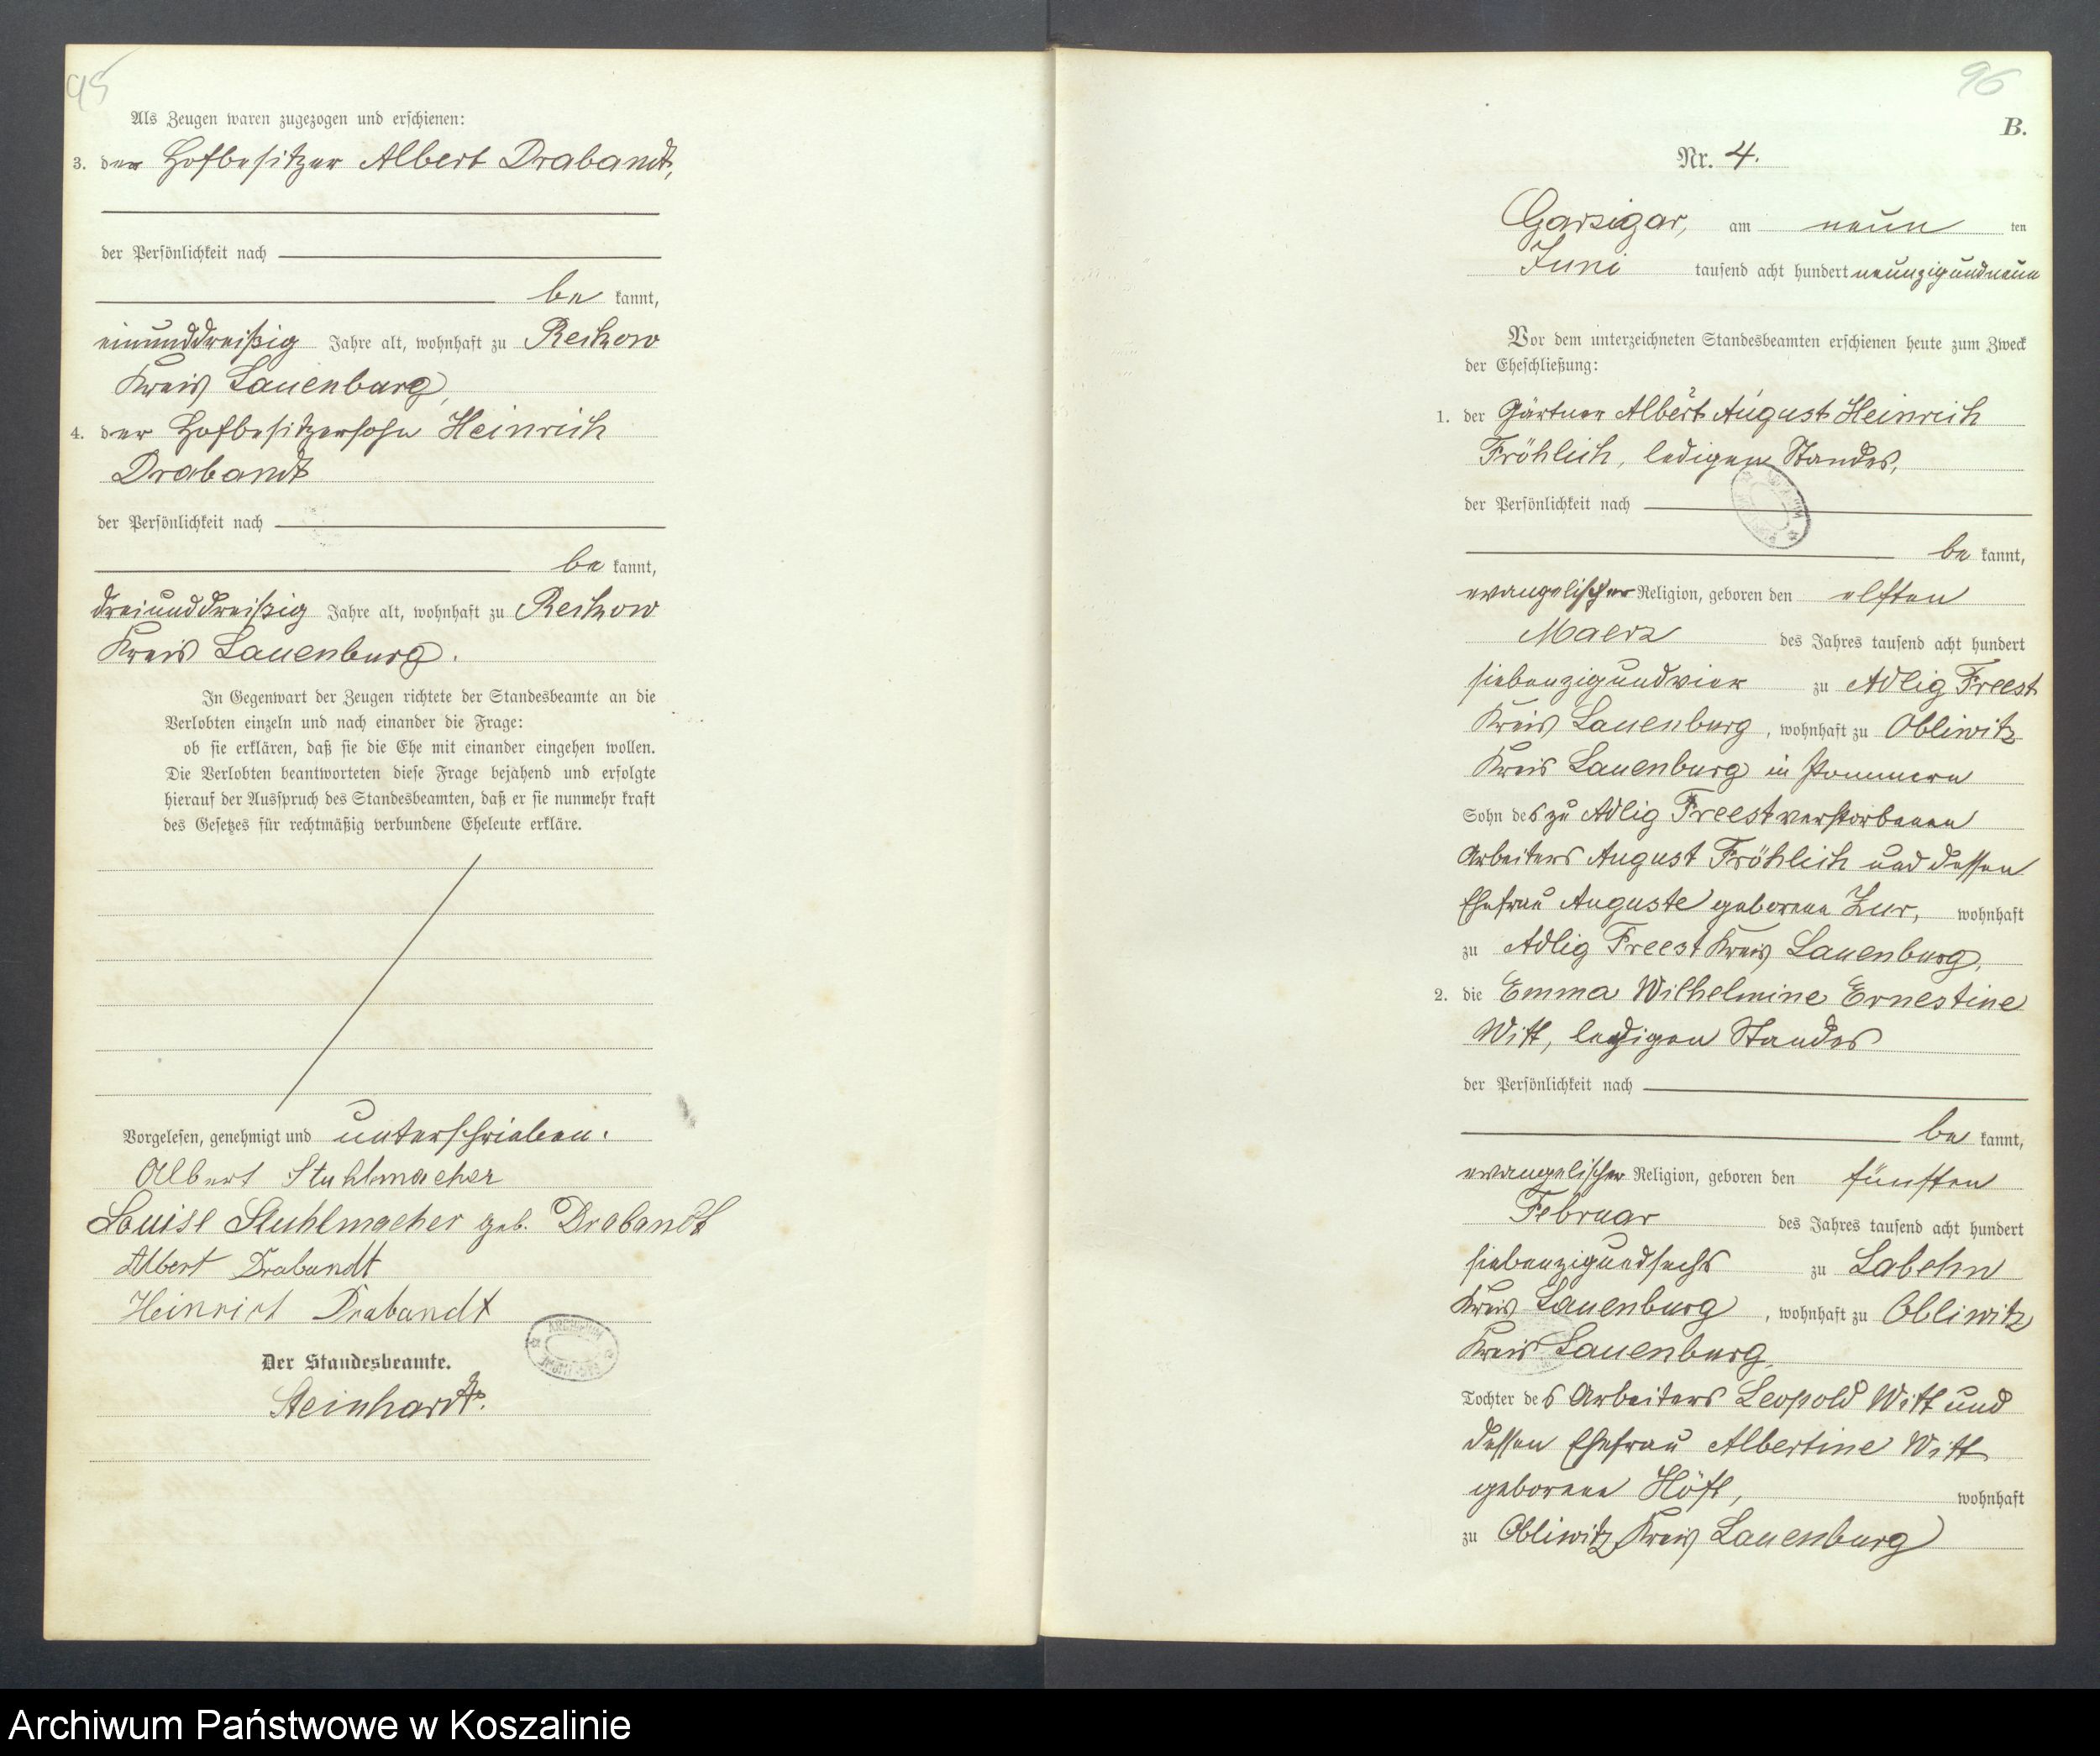 95
Als Zeugen waren zugezogen und erschienen:
3. der Hofbesitzer Albert Drabandt,
der Persönlichkeit nach
be kannt,
einunddreißig Jahre alt, wohnhaft zu Reckow
Kreis Lauenburg,
4. der Hofbesitzersohn Heinrich
Drabandt
der Persönlichkeit nach
be kannt,
dreiunddreißig Jahre alt, wohnhaft zu Reckow
Kreis Lauenburg.
In Gegenwart der Zeugen richtete der Standesbeamte an die
Verlobten einzeln und nach einander die Frage:
ob sie erklären, daß sie die Ehe mit einander eingehen wollen.
Die Verlobten beantworteten diese Frage bejahend und erfolgte
hierauf der Ausspruch des Standesbeamten, daß er sie nunmehr kraft
des Gesetzes für rechtmäßig verbundene Eheleute erkläre.
Vorgelesen, genehmigt und unterschrieben.
Albert Stuhlmacher
Louise Stuhlmacher geb. Drabandt
Albert Drabandt
Heinrich Drabandt
Der Standesbeamte.
Steinhardt.
96
B.
Nr. 4.
Garzigar, am neun ten
Juni tausend acht hundert neunzigundneun
Vor dem unterzeichneten Standesbeamten erschienen heute zum Zweck
der Eheschließung:
1. der Gärtner Albert August Heinrich
Fröhlich, ledigen Standes,
der Persönlichkeit nach
be kannt,
evangelischer Religion, geboren den elften
Maerz des Jahres tausend acht hundert
siebenzigundvier zu Adlig Freest
Kreis Lauenburg, wohnhaft zu Obliwitz
Kreis Lauenburg in Pommern
Sohn des zu Adlig Freest verstorbenen
Arbeiters August Fröhlich und dessen
Ehefrau Auguste geborene Zur, wohnhaft
zu Adlig Freest Kreis Lauenburg,
2. die Emma Wilhelmine Ernestine
Witt, ledigen Standes
der Persönlichkeit nach
be kannt,
evangelischer Religion, geboren den fünften
Februar des Jahres tausend acht hundert
siebenzigundsechs zu Labehn
Kreis Lauenburg, wohnhaft zu Obliwitz
Kreis Lauenburg,
Tochter des Arbeiters Leopold Witt und
dessen Ehefrau Albertine Witt
geborene Höft, wohnhaft
zu Obliwitz, Kreis Lauenburg
Archiwum Państwowe w Koszalinie